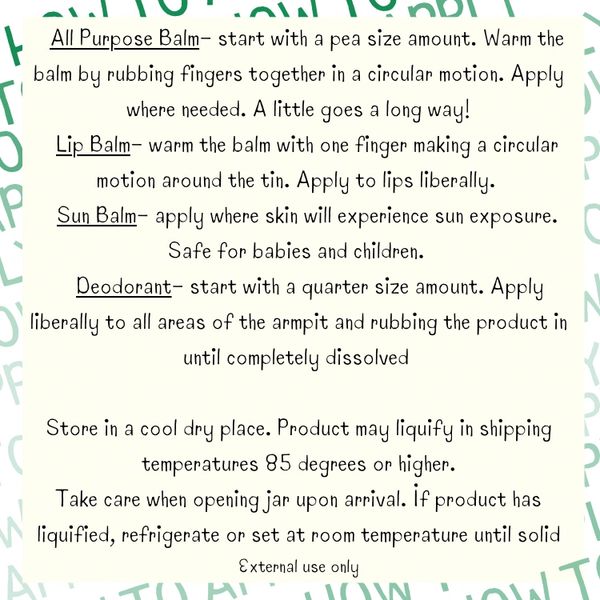 All Purpose Balm- start with a pea size amount. Warm the
balm by rubbing fingers together in a circular motion. Apply
where needed. A little goes a long way!
Lip Balm- warm the balm with one finger making a circular
motion around the tin. Apply to lips liberally.
Sun Balm- apply where skin will experience sun exposure.
Safe for babies and children.
Deodorant- start with a quarter size amount. Apply
liberally to all areas of the armpit and rubbing the product in
until completely dissolved
Store in a cool dry place. Product may liquify in shipping
temperatures 85 degrees or higher.
Take care when opening jar upon arrival. If product has
liquified, refrigerate or set at room temperature until solid
External use only